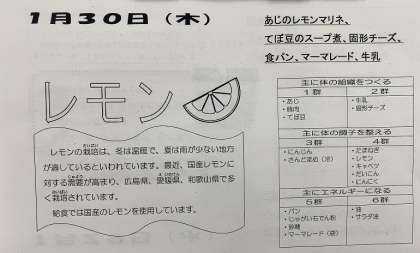 1月30日（木）
あじのレモンマリネ、
てぼ豆のスープ煮、固形チーズ、
食パン、マーマレード、牛乳
レモン
レモンの栽培は、冬は温暖で、夏は雨が少ない地方
が適しているといわれています。最近、国産レモンに
対する需要が高まり、広島県、愛媛県、和歌山県で多
く栽培されています。
給食では国産のレモンを使用しています。
主に体の組織をつくる
1群 2群
・あじ ・牛乳
・豚肉 ・固形チーズ
・てぼ豆
主に体の調子を整える
3群 4群
・にんじん ・たまねぎ
・さんとまめ（冷） ・レモン
・キャベツ
・だいこん
・にんにく
主にエネルギーになる
5群 6群
・パン ・油
・じゃがいもでん粉 ・サラダ油
・砂糖
・マーマレード（袋）